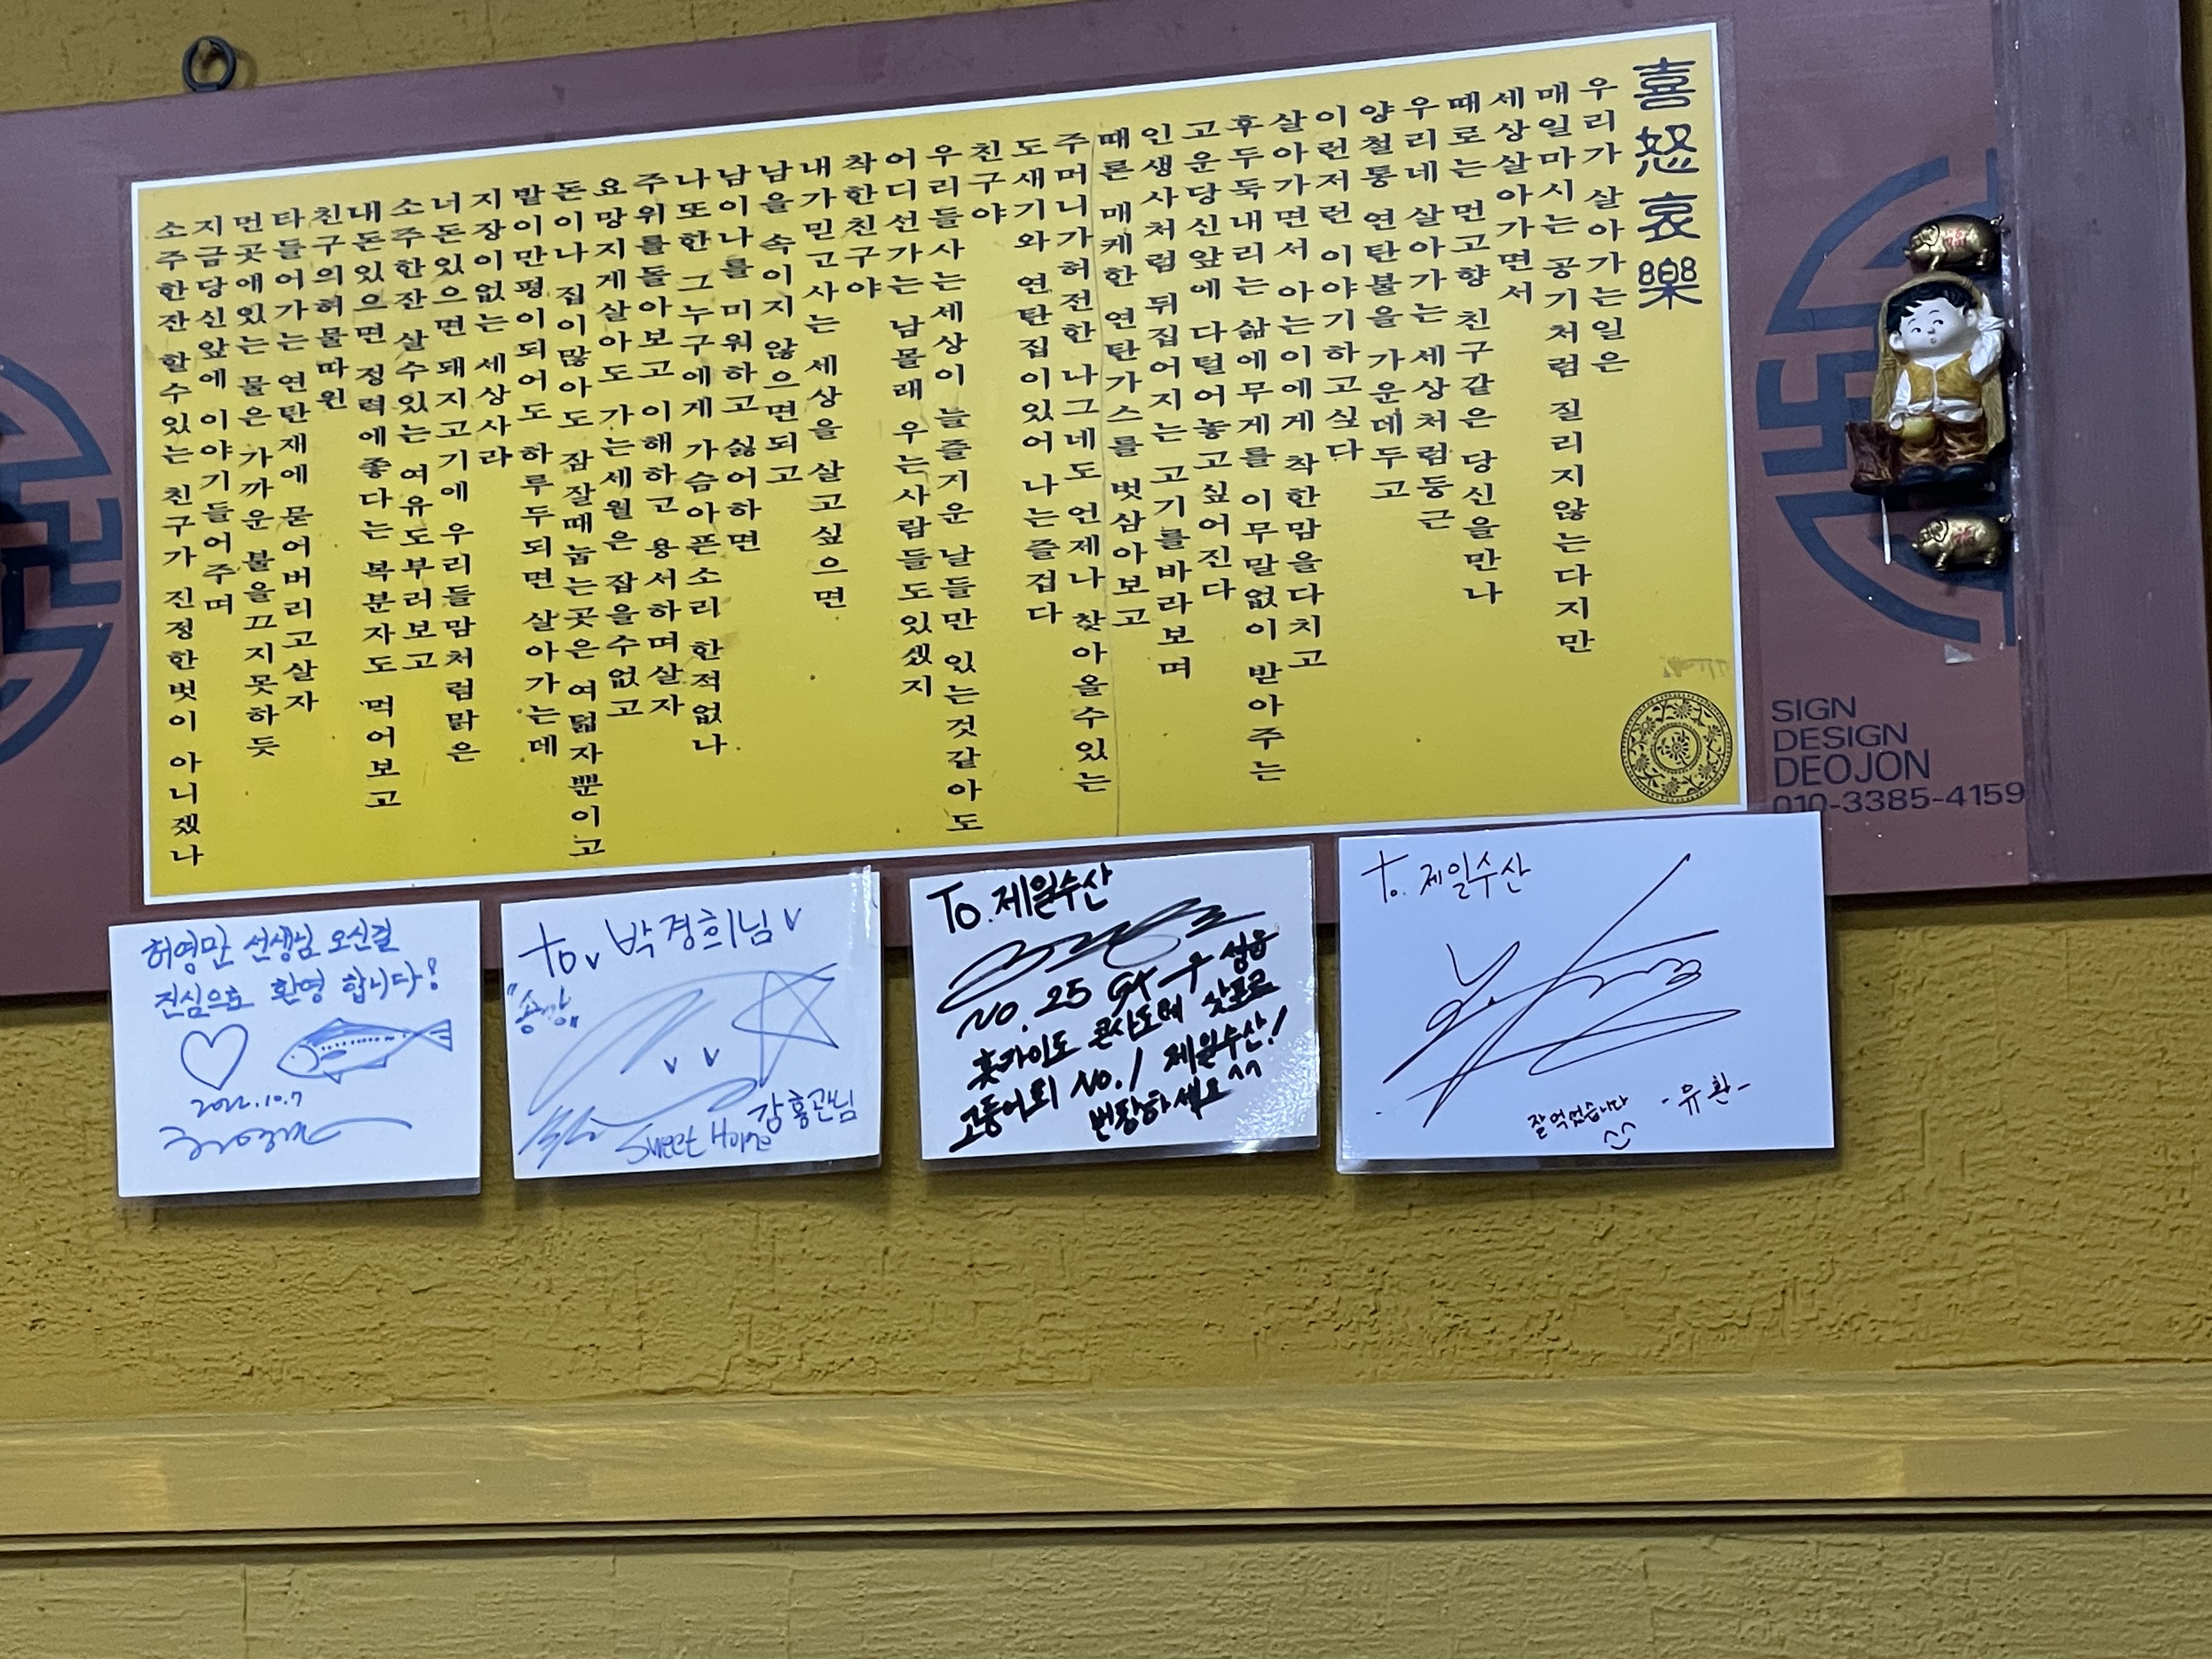 喜怒哀樂
우리가 살아가는일은
매일마시는 공기처럼 질리지않는다지만
세상살아가면서
때로는 먼고향 친구같은 당신을만나
우리네 살아가는 세상처럼둥근
양철통 연탄불을 가운데두고
이런저런 이야기하고싶다
살아가면서 아는이에게 착한맘을다치고
후두둑내리는 삶에무게를 이무말없이 받아주는
고운당신앞에 다털어놓고싶어진다
인생사처럼 뒤집어지는 고기를바라보며
때론 매케한 연탄가스를 벗삼아보고
주머니가허전한 나그네도 언제나 찾아올수있는
도새기와 연탄집이있어 나는즐겁다
친구야
우리들사는세상이 늘즐거운 날들만 있는것같아도
어디선가는 남몰래 우는사람들도있겠지
착한친구야
내가믿고사는 세상을 살고싶으면
남을속이지 않으면되고
남이나를 미워하고 싫어하면
나또한 그누구에게 가슴아픈소리 한적없나
주위를돌아보고 이해하고 용서하며살자
요망지게살아도 가는세월은 잡을수없고
돈이나 집이많아도 잠잘때눕는곳은 여덟자뿐이고
밭이만평이되어도 하루두되면 살아가는데
지장이없는 세상사라
너돈있으면 돼지고기에 우리들맘처럼맑은
소주한잔 살수있는 여유도부려보고
내돈있으면 정력에좋다는 복분자도 먹어보고
친구의허물따윈
타들어가는 연탄재에 묻어버리고살자
먼곳에있는 물은 가까운 불을끄지못하듯
지금당신앞에 이야기들어주며
소주한잔 할수있는 친구가 진정한벗이 아니겠나
SIGN
DESIGN
DEOJON
010-3385-4159
허영만 선생님 오신걸
진심으로 환영 합니다!
2022.10.7
to. 박경희님
"송강"
Sweet Home
감홍관님
To. 제일수산
No. 25 GK 우성용
홋카이도 콘사도레 삿포로
고등어회 No.1 제일수산!
번창하세요^^
to. 제일수산
잘 먹었습니다
-유환-